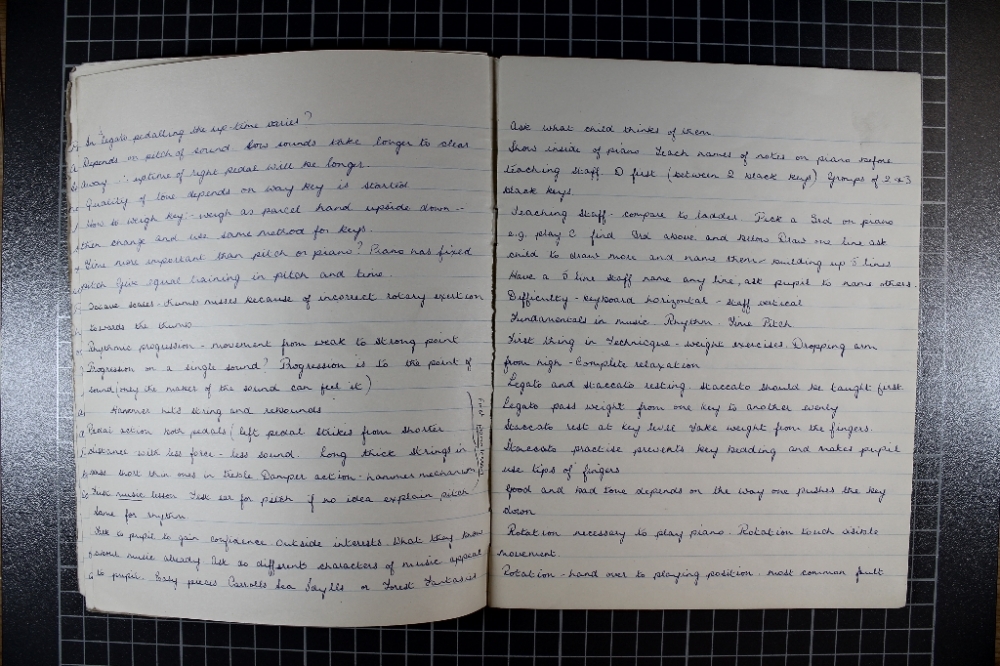 In legato pedalling the up-time varies?
Depends on pitch of sound. Low sounds take longer to clear
away ∴ uptime of right pedal will be longer.
Quality of tone depends on way key is started
How to weigh key - weigh as parcel hand upside down -
then change and use same method for keys.
Time more important than pitch on piano? Piano has fixed
pitch Give equal training in pitch and time.
scales - thumb misses because of incorrect rotary exertion
towards the thumb
Rhythmic progression - movement from weak to strong point
Progression on a single sound? Progression is to the point of
sound (only the maker of the sound can feel it)
Hammer hits string and rebounds
Pedal action both pedals (left pedal strikes from shorter
distance with less force - less sound. Long thick strings in
bass short thin ones in treble Damper action - hammer mechanism
First music lesson Test ear for pitch if no idea explain pitch
Same for rhythm
Talk to pupil to gain confidence Outside interests. What they know
about music already Ask do different characters of music appeal
to pupil. Easy pieces Carrolls Sea Idylls or Forest Fantasies
Ask what child thinks of them
Show inside of piano Teach names of notes on piano before
teaching staff. D first (between 2 black keys) Groups of 2 + 3
black keys.
Teaching Staff - compare to ladder. Pick a 3rd on piano
e.g. play C find 3rd above and below Draw one line ask
child to draw more and name them - building up 5 lines
Have a 5 line staff name any line, ask pupil to name others.
Difficulty - keyboard horizontal - staff vertical
Fundamentals in music Rhythm. Time Pitch
First thing in Technique - weight exercises. Dropping arm
from high - Complete relaxation
Legato and staccato resting. Staccato should be taught first
Legato pass weight from one key to another evenly
Staccato rest at key level Take weight from the fingers.
Staccato practise prevents key bedding and makes pupil
use tips of fingers
Good and bad tone depends on the way one pushes the key
down
Rotation necessary to play piano. Rotation touch visible
movement.
Rotation - hand over to playing position. most common fault